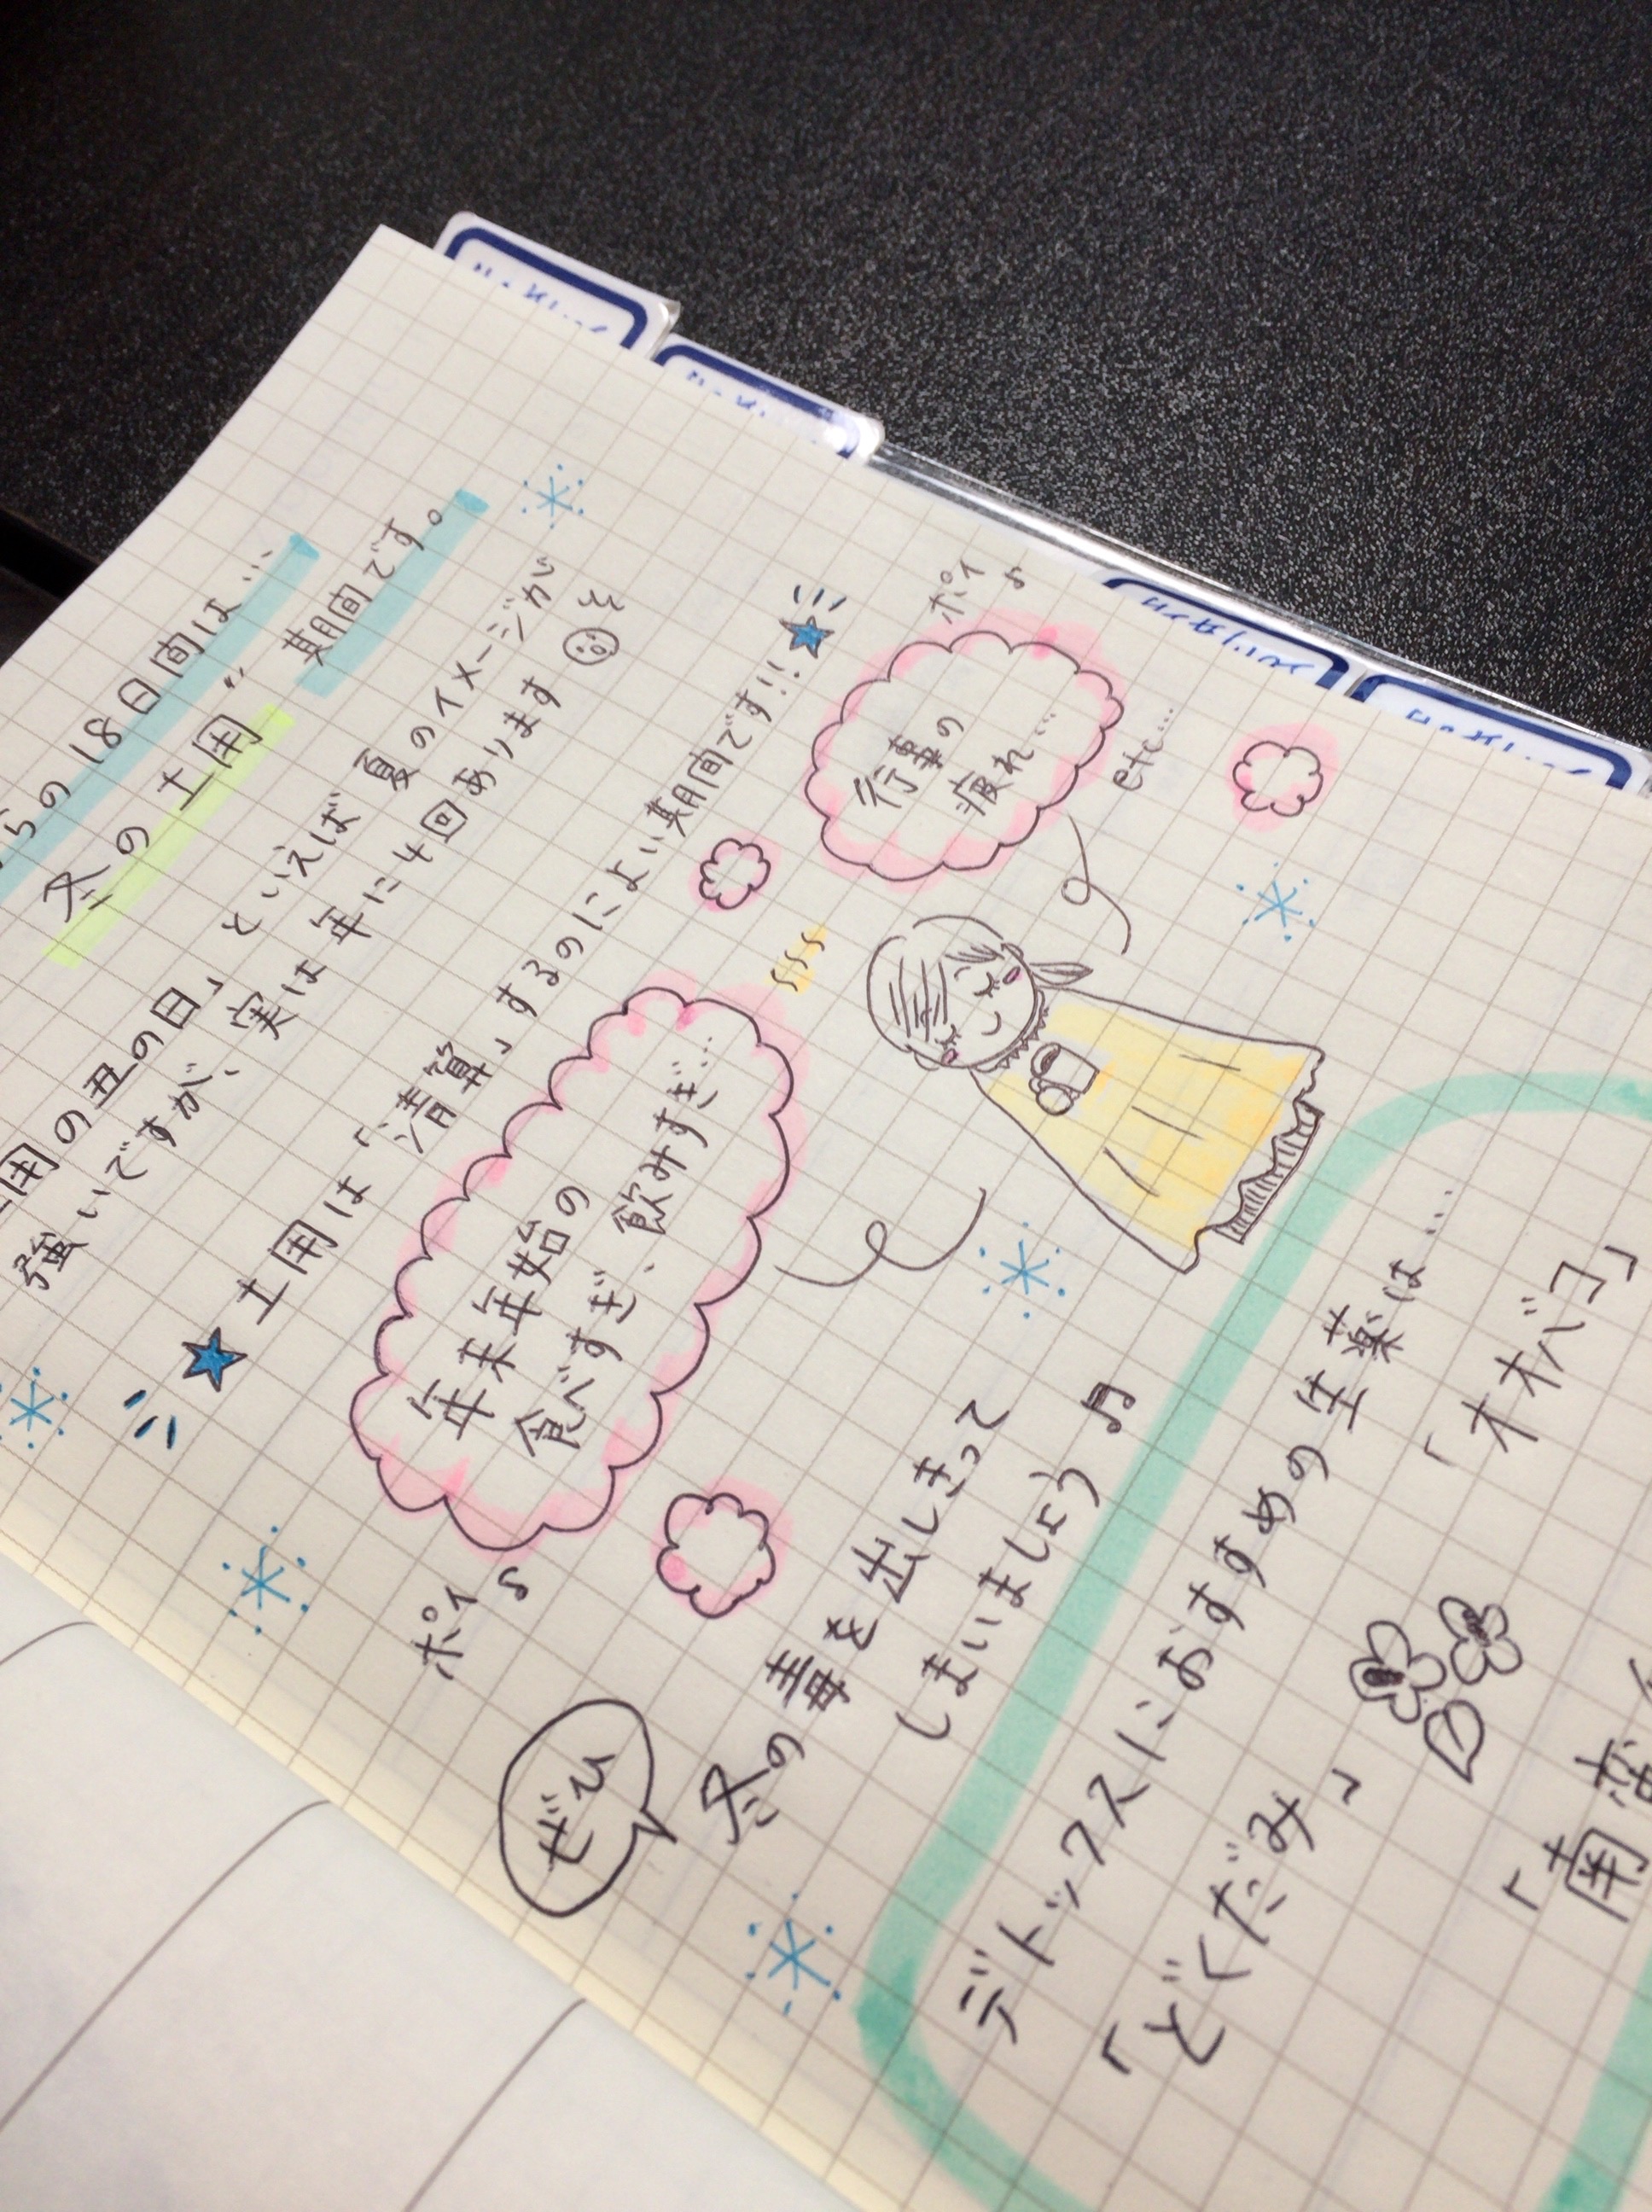 らの18日間は…
冬の土用〟期間です。
土用の丑の日」といえば夏のイメージが
強いですが、実は年に4回あります
土用は「清算」するのによい期間です!!
年末年始の
食べすぎ、飲みすぎ…
ポイ
行事の
疲れ…
ポイ
etc…
ぜひ
冬の毒を出しきって
しまいましょう
デトックスにおすすめの生薬は…
「どくだみ」
「オオバコ」